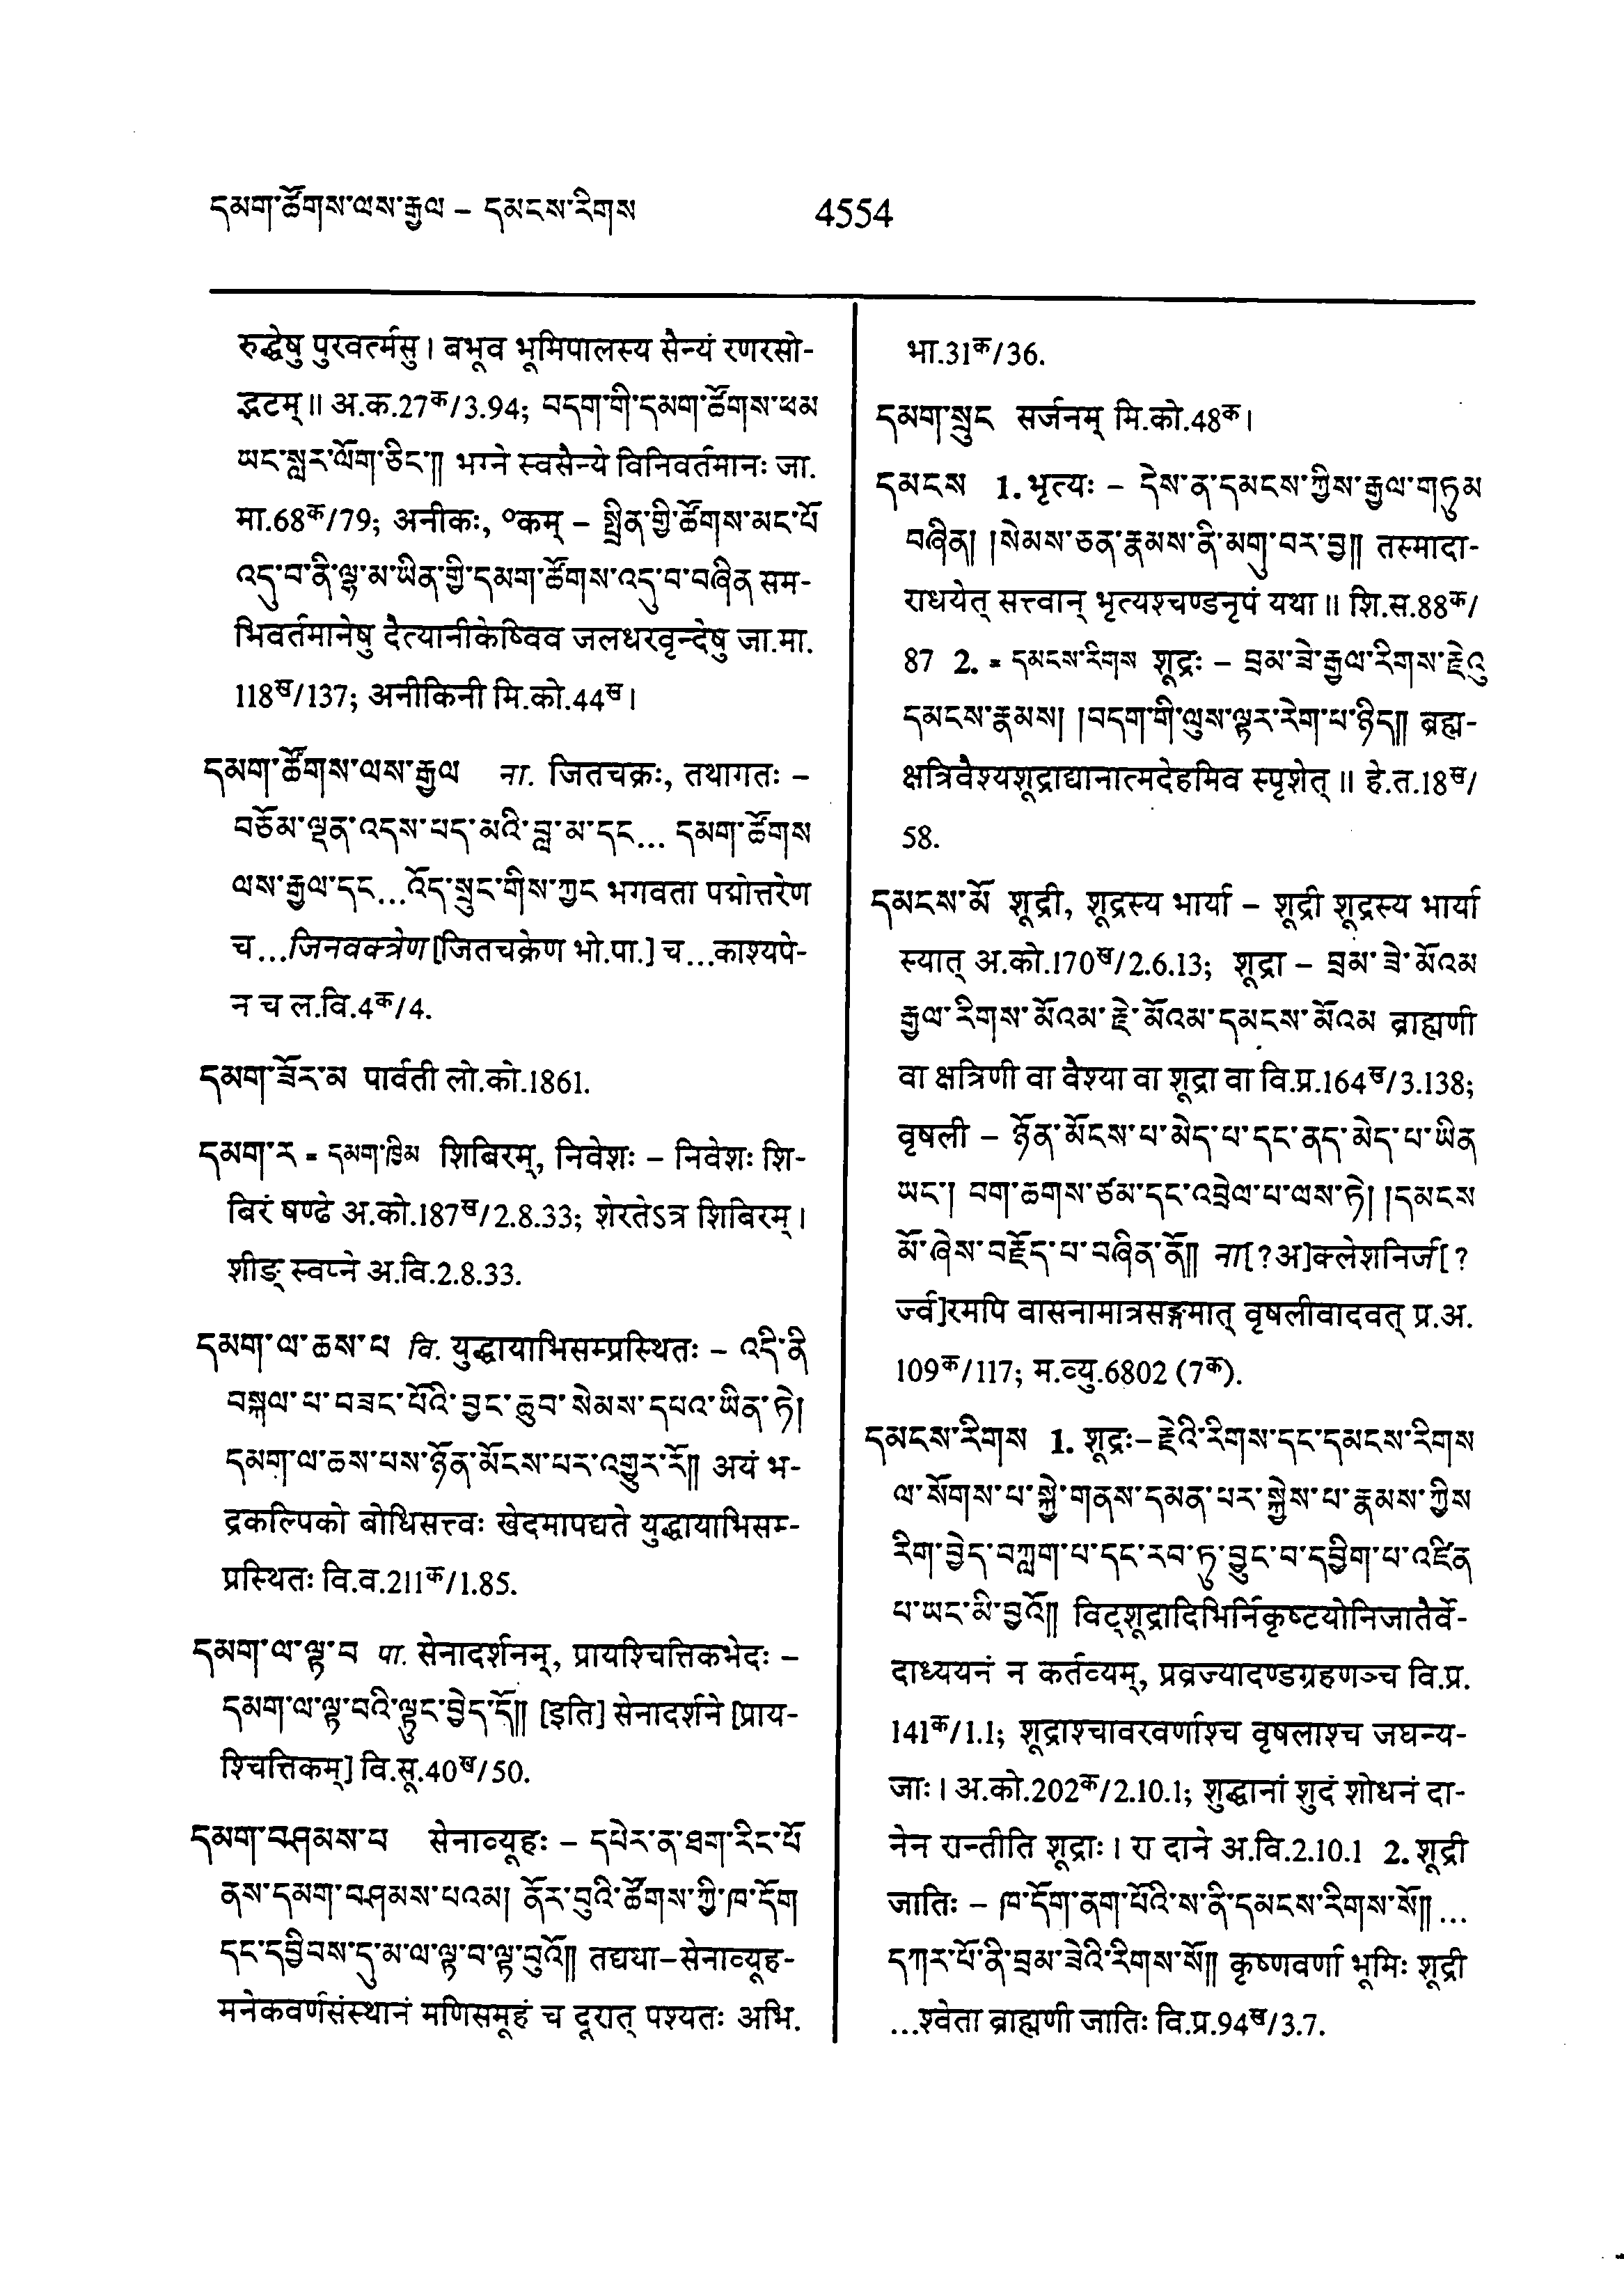 དམག་ཚོགས་ལས་རྒྱལ – དམངས་རིགས
4554
रुद्धेषु पुरवर्त्मसु । बभूव भूमिपालस्य सैन्यं रणरसो-
द्भटम् ॥ अ.क.27क/3.94; བདག་གི་དམག་ཚོགས་ཕམ
ཡང་སླར་ལོག་ཅིང་༎ भग्ने स्वसैन्ये विनिवर्तमानः जा.
मा.68क/79; अनीकः, ०कम् – སྤྲིན་གྱི་ཚོགས་མང་པོ
འདུ་བ་ནི་ལྷ་མ་ཡིན་གྱི་དམག་ཚོགས་འདུ་བ་བཞིན सम-
भिवर्तमानेषु दैत्यानीकेष्विव जलधरवृन्देषु जा.मा.
118ख/137; अनीकिनी मि.को.44ख ।
དམག་ཚོགས་ལས་རྒྱལ ना. जितचक्रः, तथागतः –
བཅོམ་ལྡན་འདས་པད་མའི་བླ་མ་དང... དམག་ཚོགས
ལས་རྒྱལ་དང...འོད་སྲུང་གིས་ཀྱང भगवता पद्मोत्तरेण
च...जिनवक्त्रेण [जितचक्रेण भो.पा.] च...काश्यपे-
न च ल.वि.4क/4.
དམག་ཟོར་མ पार्वती लो.को.1861.
དམག་ར = དམག་ཁྲིམ शिबिरम्, निवेशः – निवेशः शि-
बिरं षण्ढे अ.को.187ख/2.8.33; शेरतेऽत्र शिबिरम् ।
शीङ् स्वप्ने अ.वि.2.8.33.
དམག་ལ་ཆས་པ वि. युद्धायाभिसम्प्रस्थितः – འདི་ནི
བསྐལ་པ་བཟང་པོའི་བྱང་ཆུབ་སེམས་དཔའ་ཡིན་ཏེ།
དམག་ལ་ཆས་པས་ཉོན་མོངས་པར་འགྱུར་རོ༎ अयं भ-
द्रकल्पिको बोधिसत्त्वः खेदमापद्यते युद्धायाभिसम-
प्रस्थितः वि.व.211क/1.85.
དམག་ལ་ལྟ་བ पा. सेनादर्शनम्, प्रायश्चित्तिकभेदः –
དམག་ལ་ལྟ་བའི་ལྟུང་བྱེད་དོ༎ [इति] सेनादर्शने [प्राय-
श्चित्तिकम्] वि.सू.40ख/50.
དམག་བཤམས་པ सेनाव्यूहः – དཔེར་ན་ཐག་རིང་པོ
ནས་དམག་བཤམས་པའམ། ནོར་བུའི་ཚོགས་ཀྱི་ཁ་དོག
དང་དབྱིབས་དུ་མ་ལ་ལྟ་བ་ལྟ་བུའོ༎ तद्यथा–सेनाव्यूह-
मनेकवर्णसंस्थानं मणिसमूहं च दूरात् पश्यतः अभि.
भा.31क/36.
དམག་སྲུང सर्जनम् मि.को.48क ।
དམངས 1. भृत्यः – དེས་ན་དམངས་ཀྱིས་རྒྱལ་གཏུམ
བཞིན། །སེམས་ཅན་རྣམས་ནི་མགུ་བར་བྱ༎ तस्मादा-
राधयेत् सत्त्वान् भृत्यश्चण्डनृपं यथा ॥ शि.स.88क/
87 2. = དམངས་རིགས शूद्रः – བྲམ་ཟེ་རྒྱལ་རིགས་རྗེའུ
དམངས་རྣམས། །བདག་གི་ལུས་ལྟར་རེག་པ་ཉིད༎ ब्रह्म-
क्षत्रिवैश्यशूद्राद्यानात्मदेहमिव स्पृशेत् ॥ हे.त.18ख/
58.
དམངས་མོ शूद्री, शूद्रस्य भार्या – शूद्री शूद्रस्य भार्या
स्यात् अ.को.170ख/2.6.13; शूद्रा – བྲམ་ཟེ་མོའམ
རྒྱལ་རིགས་མོའམ་རྗེ་མོའམ་དམངས་མོའམ ब्राह्मणी
वा क्षत्रिणी वा वैश्या वा शूद्रा वा वि.प्र.164ख/3.138;
वृषली – ཉོན་མོངས་པ་མེད་པ་དང་ནད་མེད་པ་ཡིན
ཡང་། བག་ཆགས་ཙམ་དང་འབྲེལ་པ་ལས་ཏེ། །དམངས
མོ་ཞེས་བརྗོད་པ་བཞིན་ནོ༎ ना[?अ]क्लेशनिर्ज[?
र्ज्व]रमपि वासनामात्रसङ्गमात् वृषलीवादवत् प्र.अ.
109क/117; म.व्यु.6802 (7क).
དམངས་རིགས 1. शूद्रः–རྗེའི་རིགས་དང་དམངས་རིགས
ལ་སོགས་པ་སྐྱེ་གནས་དམན་པར་སྐྱེས་པ་རྣམས་ཀྱིས
རིག་བྱེད་བཀླག་པ་དང་རབ་ཏུ་བྱུང་བ་དབྱིག་པ་འཛིན
པ་ཡང་མི་བྱའོ༎ विट्शूद्रादिभिर्निकृष्टयोनिजातैर्वे-
दाध्ययनं न कर्तव्यम्, प्रव्रज्यादण्डग्रहणञ्च वि.प्र.
141क/1.1; शूद्राश्चावरवर्णाश्च वृषलाश्च जघन्य-
जाः । अ.को.202क/2.10.1; शुद्धानां शुदं शोधनं दा-
नेन रान्तीति शूद्राः । रा दाने अ.वि.2.10.1 2. शूद्री
जातिः – ཁ་དོག་ནག་པོའི་ས་ནི་དམངས་རིགས་སོ༎...
དཀར་པོ་ནི་བྲམ་ཟེའི་རིགས་སོ༎ कृष्णवर्णा भूमिः शूद्री
...श्वेता ब्राह्मणी जातिः वि.प्र.94ख/3.7.